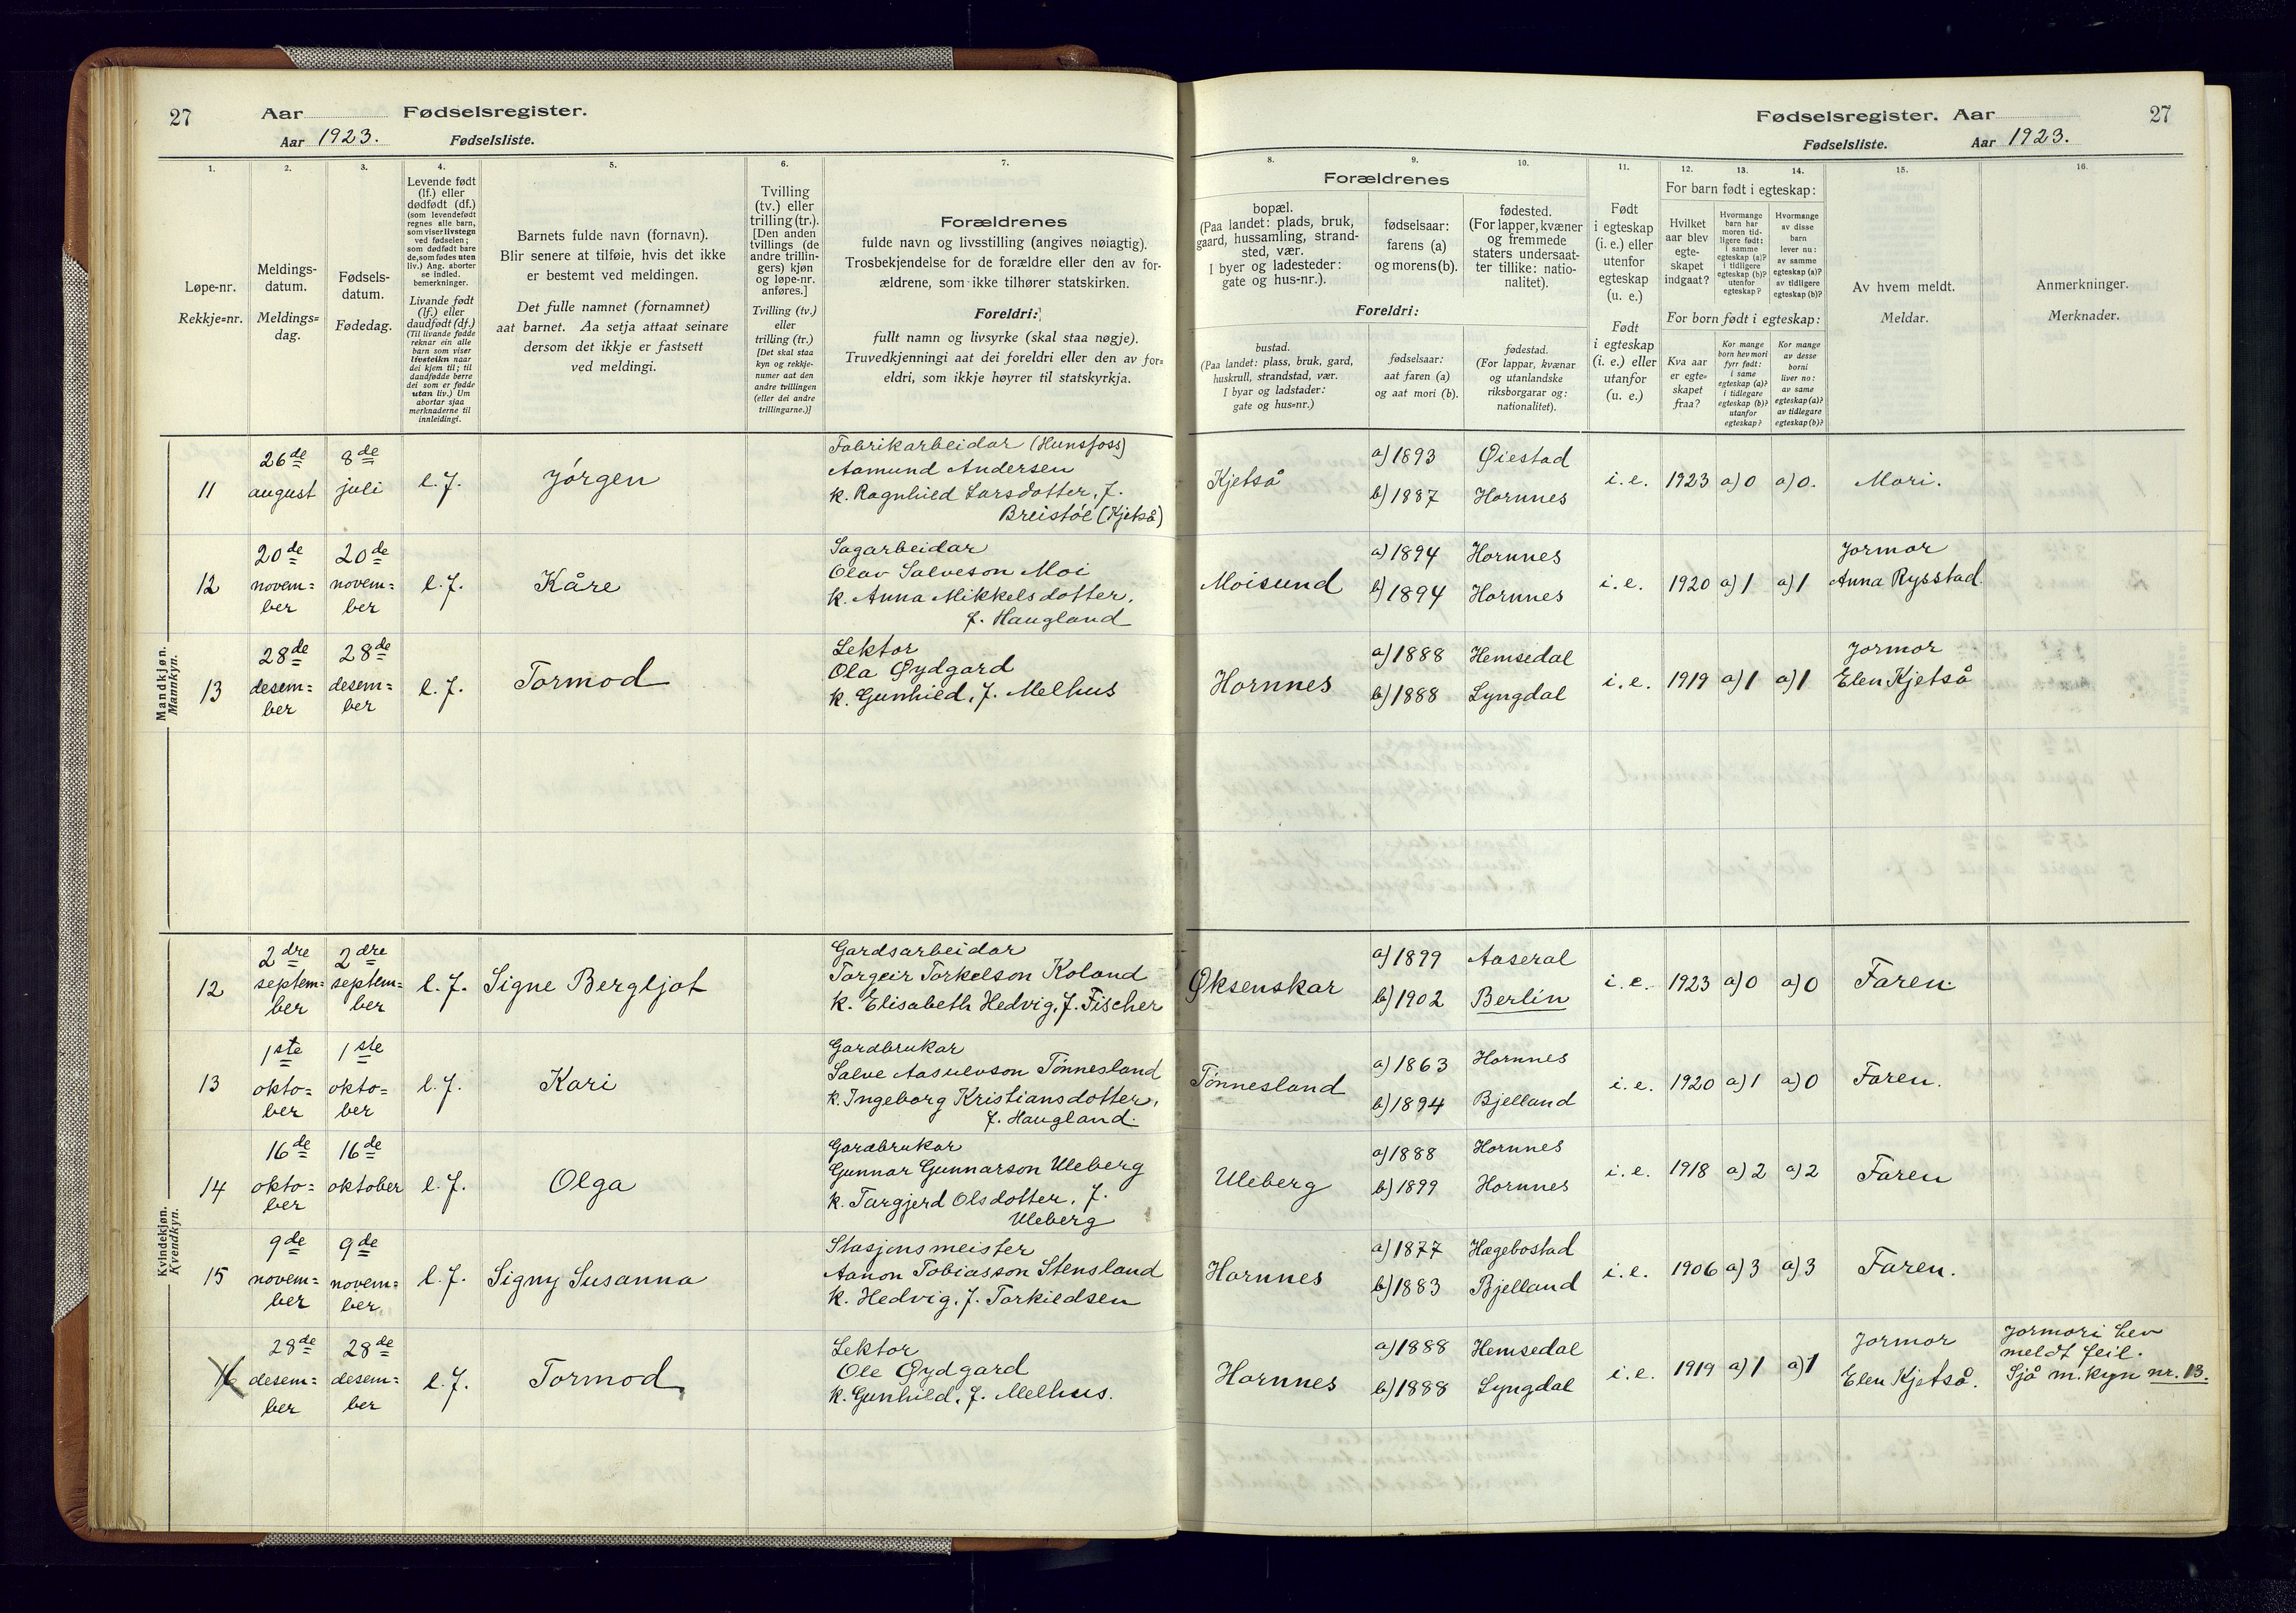 27 Aar Fødselsregister.
Aar 1923. Fødselsliste.
1. 2. 3. 4. 5. 6. 7.
Løpe-nr.
Rekkje=nr.
Meldings-
datum.
Meldings=
dag.
Fødsels-
datum.
Fødedag.
Levende født
(lf.) eller
dødfødt (df.)
(som levendefødt
regnes alle barn,
som viser livstegn
ved fødselen;
som dødfødt bare
de, som fødes uten
liv.) Ang. aborter
se indled.
bemerkninger.
Livande født
(lf.) eller
daudfødt (df.)
(Til livande fødde
reknar ein alle
barn som viser
livsteikn naar
dei kjem til; til
daudfødde berre
dei som er fødde
utan liv.) Um
abortar sjaa
merknaderne til
innleidingi.
Barnets fulde navn (fornavn).
Blir senere at tilføie, hvis det ikke
er bestemt ved meldingen.
Det fulle namnet (fornamnet)
aat barnet. Aa setja attaat seinare
dersom det ikkje er fastsett
ved meldingi.
Tvilling
(tv.) eller
trilling (tr.).
[Den anden
tvillings (de
andre trillin-
gers) kjøn
og løpe-nr.
anføres.]
Tvilling (tv.)
eller
trilling (tr.)
[Det skal staa
kyn og rekkje-
numer aat den
andre tvillingen
(eller dei andre
trillingarne.)]
Forældrenes
fulde navn og livsstilling (angives nøiagtig).
Trosbekjendelse for de forældre eller den av for-
ældrene, som ikke tilhører statskirken.
Foreldri:
fullt namn og livsyrke (skal staa nøgje).
Truvedkjenningi aat dei foreldri eller den av for-
eldri, som ikkje høyrer til statskyrkja.
Fødselsregister. Aar 27
Fødselsliste. Aar 1923.
8. 9. 10. 11. 12. 13. 14. 15. 16.
Forældrenes
bopæl.
(Paa landet: plads, bruk,
gaard, hussamling, strand-
sted, vær.
I byer og ladesteder:
gate og hus-nr.).
fødselsaar:
farens (a)
og morens (b).
fødested.
(For lapper, kvæner
og fremmede
staters undersaat-
ter tillike: natio-
nalitet).
Foreldri:
bustad.
(Paa landet: plass, bruk, gard,
huskrull, strandstad, vær.
I byar og ladstader:
gate og hus=nr.)
fødselsaar:
aat faren (a)
og aat mori (b).
fødestad.
(For lappar, kvænar
og utanlandske
riksborgarar og:
nationalitet).
Født
i egteskap
(i. e.) eller
utenfor
egteskap
(u. e.)
Født
i egteskap
(i. e.) eller
utanfor
(u. e.)
For barn født i egteskap:
Hvilket
aar blev
egte-
skapet
indgaat?
Hvormange
barn har
moren tid-
ligere født:
i samme
egteskap (a)?
i tidligere
egteskap (b)?
utenfor
egteskap?
Hvormange
av disse
barn
lever nu:
av samme
egteskap (a)?
av tidligere
egteskap (b)?
For born født i egteskap:
Kva aar
er egte=
skapet
fraa?
Kor mange
born hev mori
fyrr født:
i same
egteskap (a)?
i tidlegare
egteskap (b)?
utanfor
egteskap?
Kor mange
av desse
borni
liver no:
av same
egteskap (a)?
av tidlegare
egteskap (b)?
Av hvem meldt.
Meldar.
Anmerkninger.
Merknader.
Mandkjøn.
Mannkyn.
11 26de august 8de juli l.f. Jørgen
Fabrikarbeidar (Hunsfoss)
Aamund Andersen
k. Ragnhild Larsdotter, f.
Breistøl (Kjetså)
Kjetså a) 1893 Øiestad i.e. 1923 a) 0 a) 0. Mori.
b) 1887 Hornnes
12 20de novem=ber 20de novem=ber l.f. Kåre
Sagarbeidar
Olav Salveson Moi
k. Anna Mikkelsdotter,
f. Haugland
Moisund a) 1894 Hornnes i.e. 1920 a) 1 a) 1 Jormor
b) 1894 Hornnes Anna Rysstad.
13 28de desem=ber 28de desem=ber l.f. Tormod
Lektor
Ola Øydgard
k. Gunhild, f. Melhus
Hornnes a) 1888 Hemsedal i.e. 1919 a) 1 a) 1 Jormor
b) 1888 Lyngdal Elen Kjetså
Kvindekjøn.
Kvendkyn.
12 2dre septem=ber 2dre septem=ber l.f. Signe Bergljot
Gardsarbeidar
Torgeir Torkelson Koland
k. Elisabeth Hedvig, f. Fischer
Øksenskar a) 1899 Aaseral i.e. 1923 a) 0 a) 0 Faren.
b) 1902 Berlin
13 1ste okto=ber 1ste okto=ber l.f. Kari
Gardbrukar
Salve Aasulvson Tønnesland
k. Ingeborg Kristiansdotter,
f. Haugland.
Tønnesland a) 1863 Hornnes i.e. 1920 a) 1 a) 0 Faren.
b) 1894 Bjelland
14 16de okto=ber 16de oktober l.f. Olga
Gardbrukar
Gunnar Gunnarson Uleberg
k. Targjerd Olsdotter, f.
Uleberg
Uleberg a) 1888 Hornnes i.e. 1918 a) 2 a) 2 Faren
b) 1899 Hornnes
15 9de novem=ber 9de novem=ber l.f. Signy Susanna
Stasjonsmeister
Aanon Tobiasson Stensland
k. Hedvig, f. Torkildsen
Hornnes a) 1877 Hægebostad i.e. 1906 a) 3 a) 3 Faren.
b) 1883 Bjelland
16 28de desem=ber 28de desem=ber l.f. Tormod
Lektor
Ole Øydgard
k. Gunhild, f. Melhus.
Hornnes a) 1888 Hemsedal i.e. 1919 a) 1 a) 1 Jormor
b) 1888 Lyngdal Elen Kjetså.
Jormori hev
meldt feil.
Sjå m. kyn nr. 13.